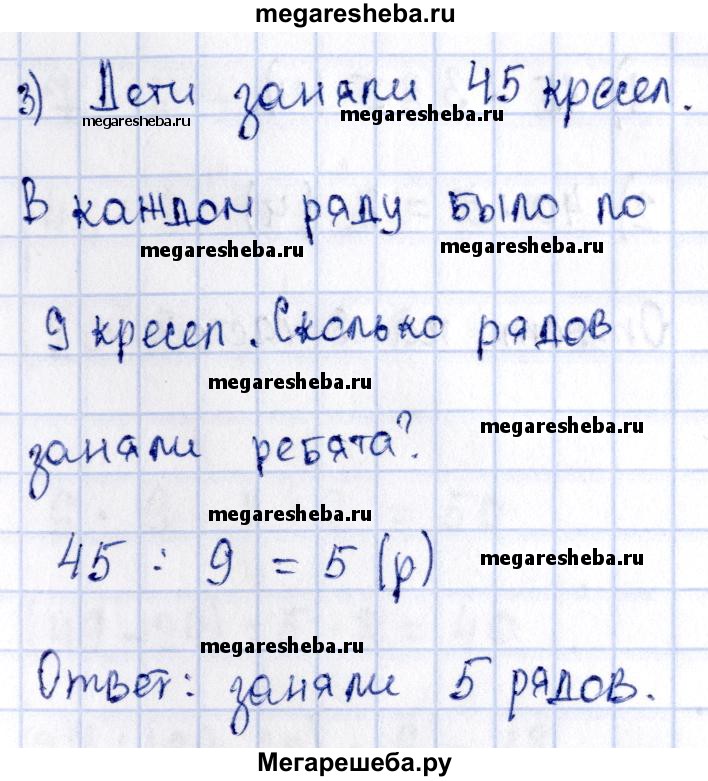 megaresheba.ru
3) Дети заняли 45 кресел.
megaresheba.ru megaresheba.ru
В каждом ряду было по
megaresheba.ru megaresheba.ru
9 кресел. Сколько рядов
megaresheba.ru megaresheba.ru
заняли ребята?
megaresheba.ru
45 : 9 = 5 (р)
megaresheba.ru
megaresheba.ru
Ответ: заняли 5 рядов.
Мегарешеба.ру